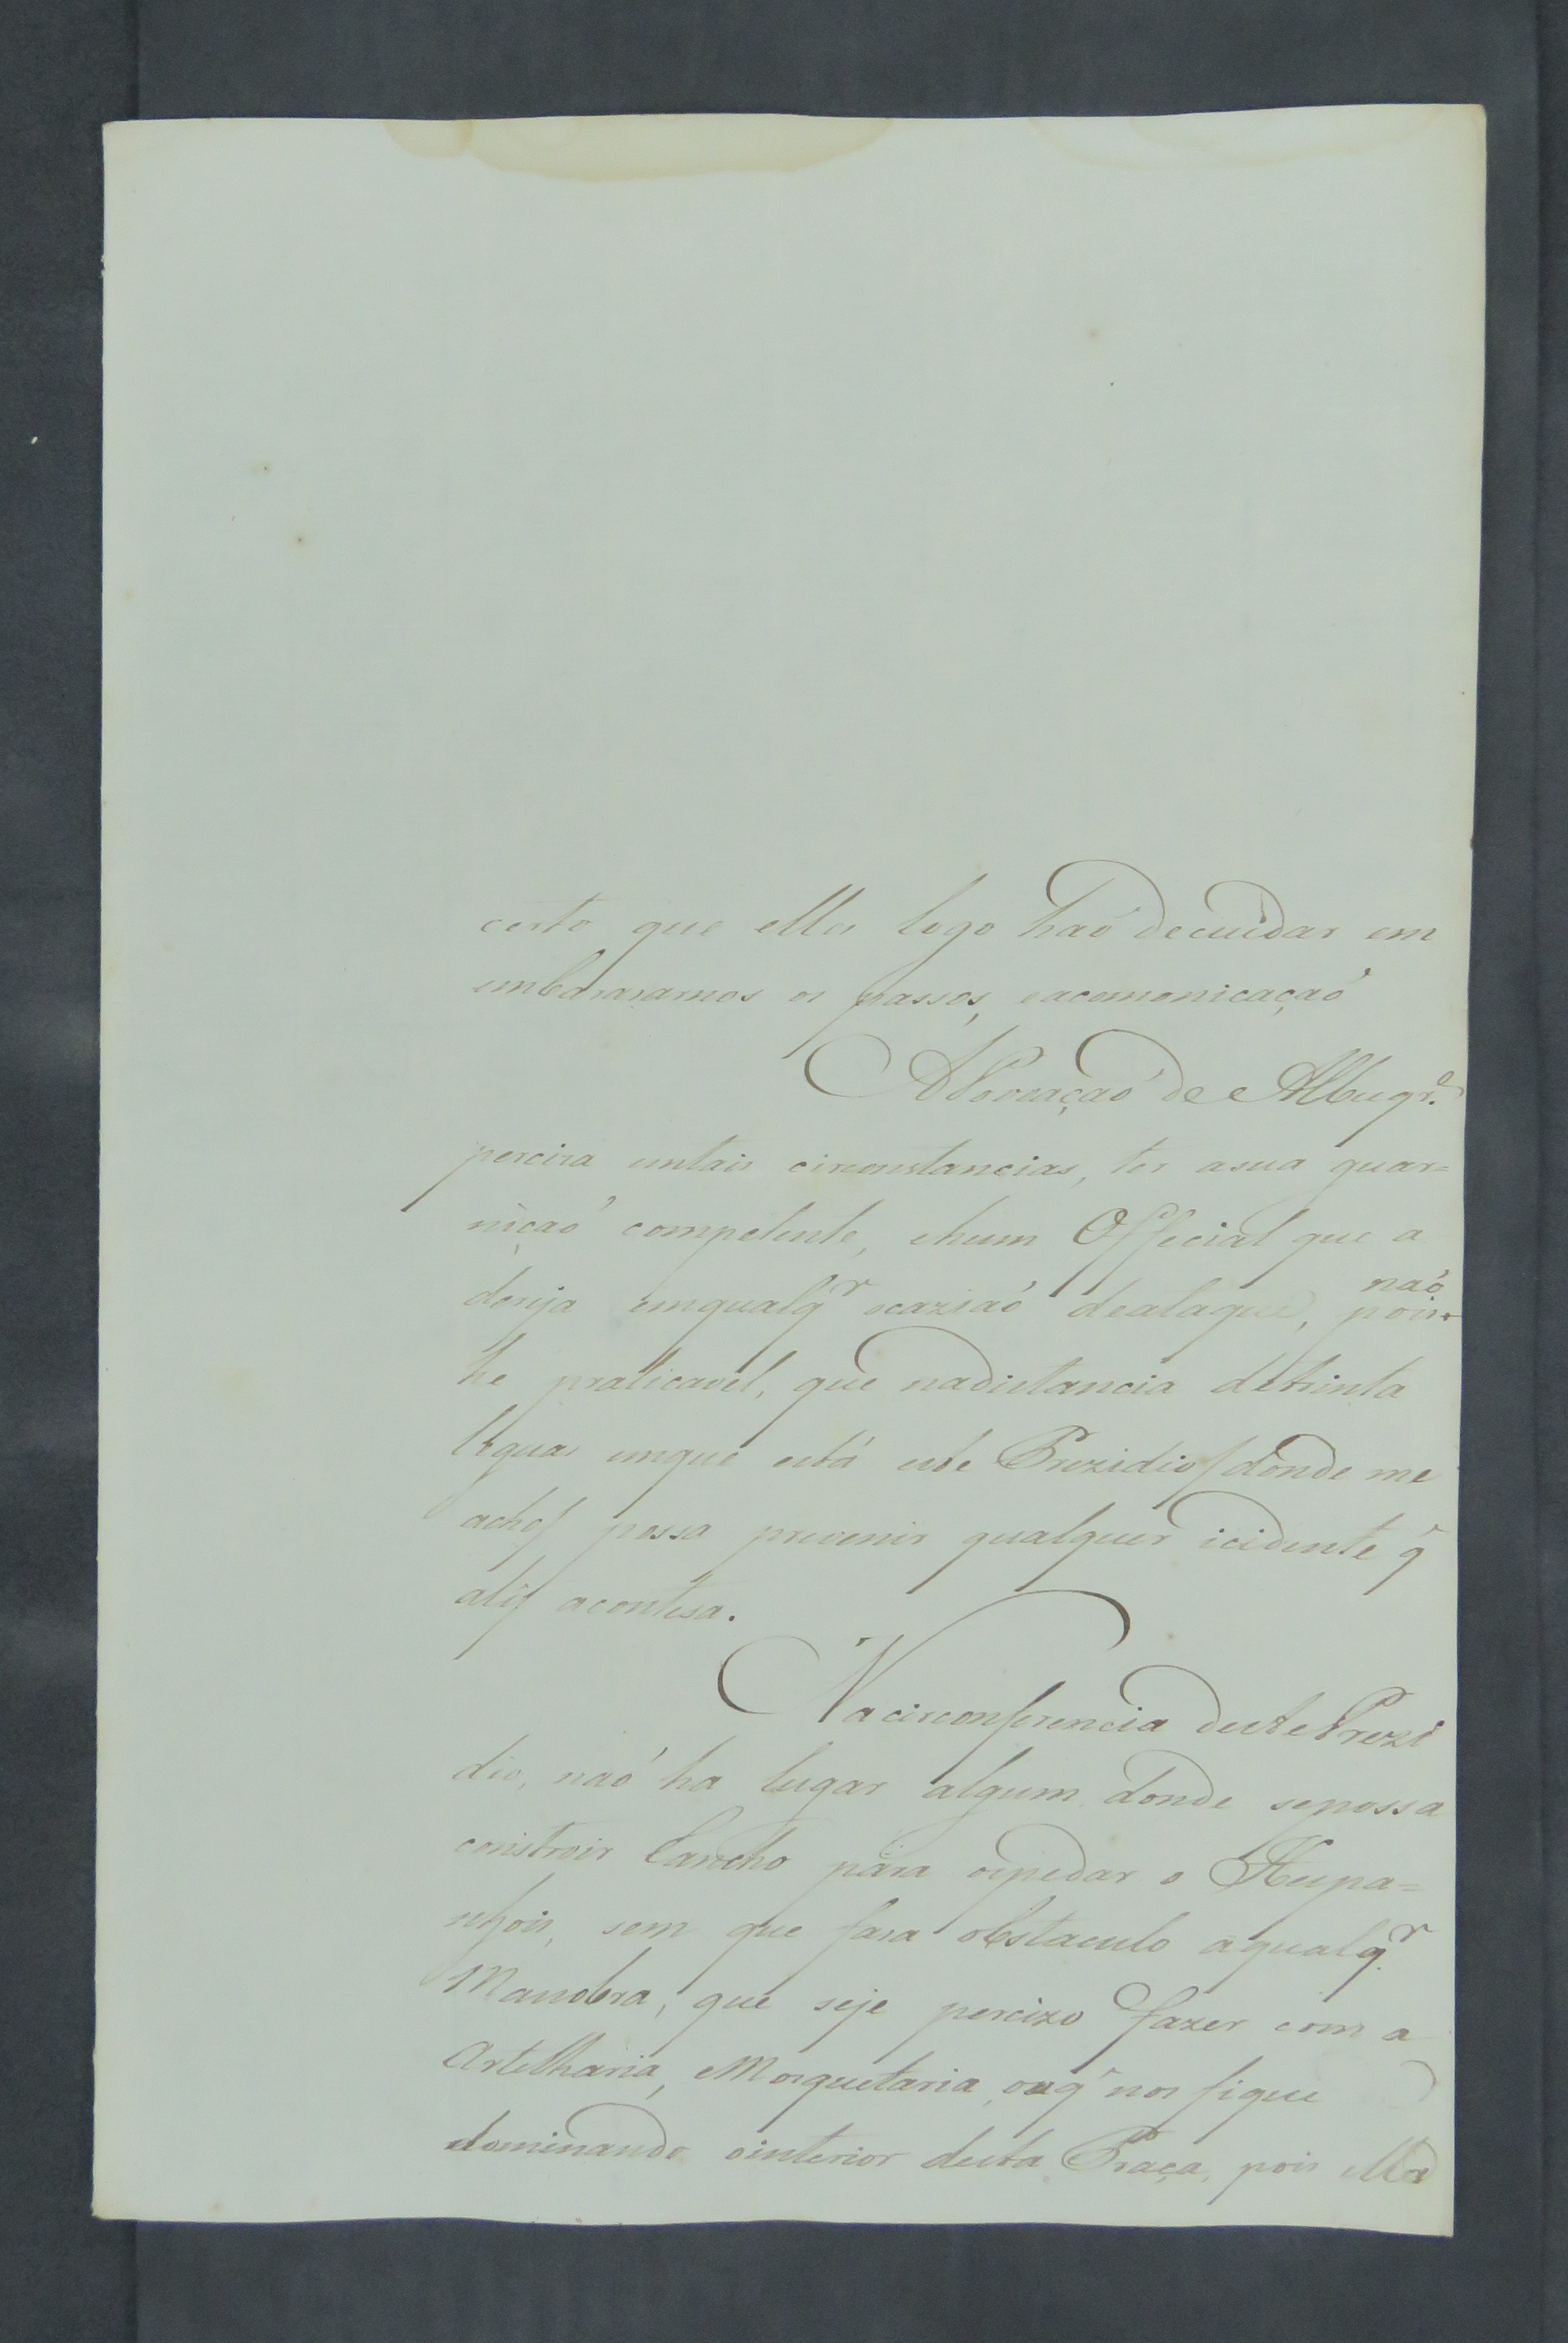 certo que elles logo haó decuidar em
embarasarnos os passos, eacomonicaçaó
A Povoaçaó de Albuqr.e
perciza emtais circonstancias, ter asua guar=
niçaó competente, ehum Official que a
derija emqualqr ocaziaó deataque, pois naó
he praticavel, que nadistancia detrinta
legoas emque está este Prezidio (donde me
acho) possa prevenir qualquer icidente q̃
ali acontesa.
Nacirconferencia deste Prezi
dio, naó ha lugar algum donde sepossa
constroir Rancho para ospedar o Hespa=
nhois, sem que fasa obstaculo aqualqr.
Manobra, que seje percizo fazer com a
Artelharia, eMosquetaria, ouq̃ nos fique
dominando ointerior desta Praça, pois ella